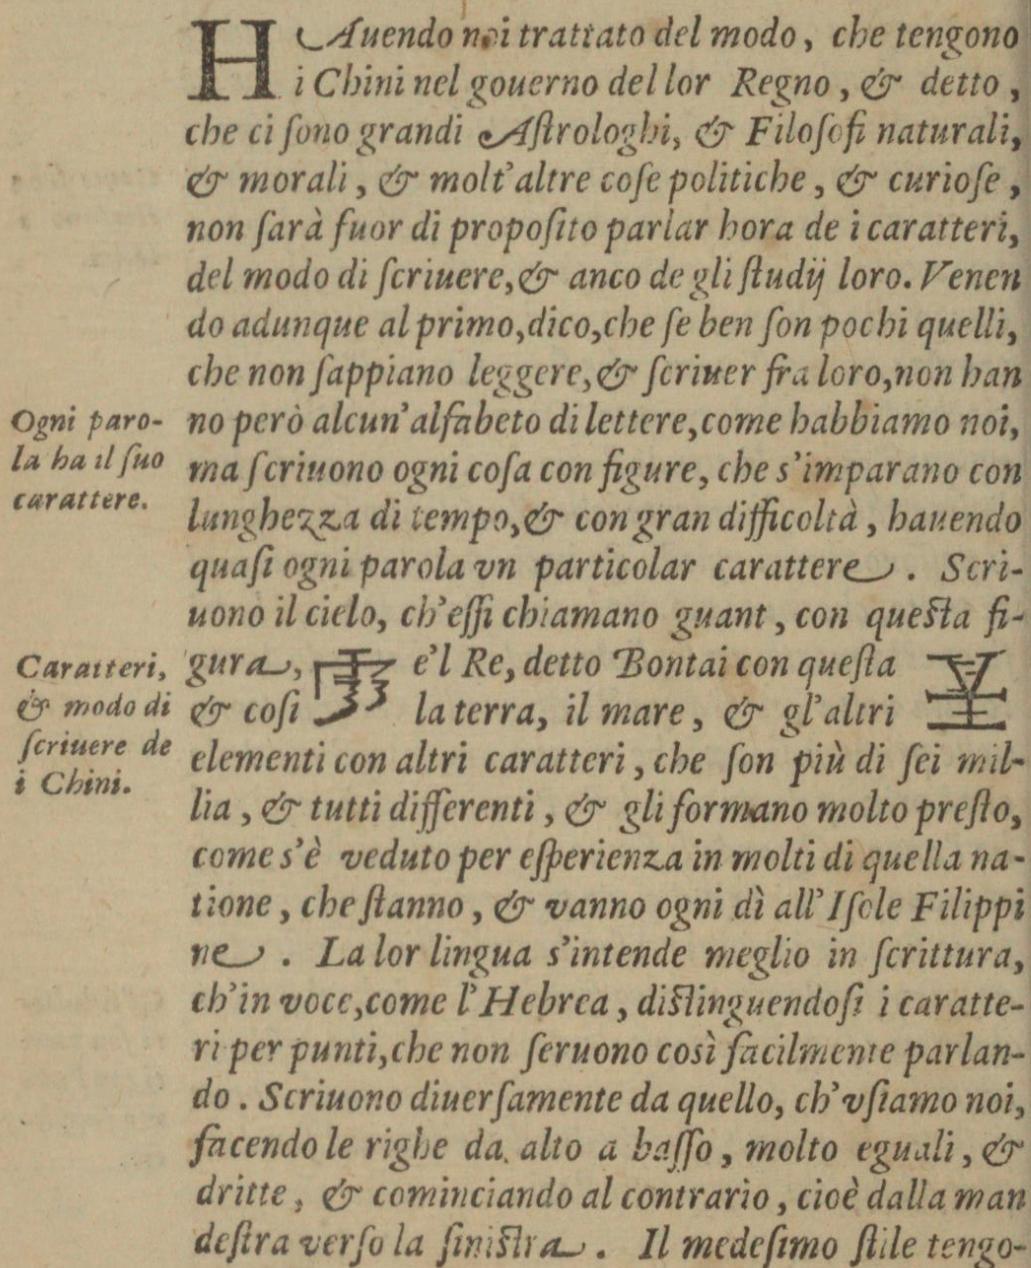 HAuendo noi trattato del modo, che tengono
i Chini nel gouerno del lor Regno, & detto,
che ci ſono grandi Aſtrologhi, & Filoſofi naturali,
& morali, & molt'altre coſe politiche, & curioſe,
non ſarà fuor di propoſito parlar hora de i caratteri,
del modo di ſcriuere, & anco de gli ſtudij loro. Venen
do adunque al primo, dico, che ſe ben ſon pochi quelli,
che non ſappiano leggere, & ſcriuer fra loro, non han
no però alcun'alfabeto di lettere, come habbiamo noi,
ma ſcriuono ogni coſa con figure, che s'imparano con
lunghezza di tempo, & con gran difficoltà, hauendo
quaſi ogni parola vn particolar carattere. Scri-
uono il cielo, ch'eſſi chiamano guant, con queſta fi-
gura, e'l Re, detto Bontai con queſta
& coſi la terra, il mare, & gl'altri
elementi con altri caratteri, che ſon più di ſei mil-
lia, & tutti differenti, & gli formano molto preſto,
come s'è veduto per eſperienza in molti di quella na-
tione, che ſtanno, & vanno ogni dì all'Iſole Filippi
ne. La lor lingua s'intende meglio in ſcrittura,
ch'in voce, come l'Hebrea, diſtinguendoſi i caratte-
ri per punti, che non ſeruono così facilmente parlan-
do. Scriuono diuerſamente da quello, ch'vſiamo noi,
facendo le righe da alto a baſſo, molto eguali, &
dritte, & cominciando al contrario, cioè dalla man
deſtra verſo la ſiniſtra. Il medeſimo ſtile tengo-
Ogni paro-
la ha il ſuo
carattere.
Caratteri,
& modo di
ſcriuere de
i Chini.